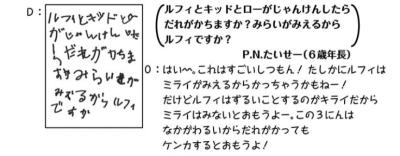 D：
ルフィとキッドとロー
がじゃんけんした
らだれがかちま
すかみらいが
みえるからルフィ
ですか
ルフィとキッドとローがじゃんけんしたら
だれがかちますか？みらいがみえるから
ルフィですか？
P.N.たいせー(６歳年長)
O：はい〜。これはすごいしつもん！たしかにルフィは
ミライがみえるからかっちゃうかもねー！
だけどルフィはずるいことするのがキライだから
ミライはみないとおもうよー。この３にんは
なかがわるいからだれがかっても
ケンカするとおもうよ！